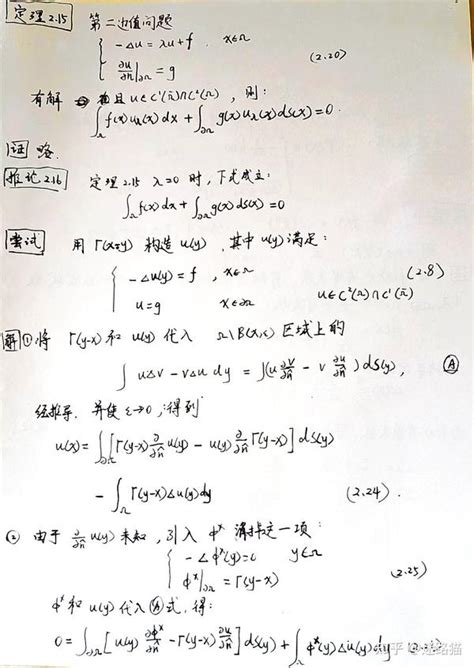 定理2.15 第二边值问题
{ -Δu = λu + f , x∈Ω
∂u/∂n̂|∂Ω = g (2.20)
有解 且 u∈C¹(Ω̄)∩C²(Ω) , 则:
∫_Ω f(x)u_λ(x)dx + ∫_∂Ω g(x)u_λ(x)dS(x) = 0.
证 略.
推论2.16 定理2.15 λ=0时, 下式成立:
∫_Ω f(x)dx + ∫_∂Ω g(x)dS(x) = 0
尝试 用 Γ(x-y) 构造 u(y) , 其中 u(y) 满足:
{ -Δu(y) = f , x∈Ω (2.8)
u = g x∈∂Ω u∈C²(Ω)∩C¹(Ω̄)
解 ① 将 Γ(y-x) 和 u(y) 代入 Ω\B(x,ε) 区域上的
∫ uΔv - vΔu dy = ∫(u ∂v/∂n̂ - v ∂u/∂n̂) dS(y), Ⓐ
经推导, 并使 ε→0, 得到
u(x) = ∫_∂Ω [Γ(y-x) ∂/∂n̂ u(y) - u(y) ∂/∂n̂ Γ(y-x)] dS(y)
- ∫_Ω Γ(y-x)Δu(y)dy (2.24).
② 由于 ∂/∂n̂ u(y) 未知, 引入 φˣ 消掉这一项:
{ -Δφˣ(y) = 0 y∈Ω
φˣ|∂Ω = Γ(y-x) (2.25)
φˣ 和 u(y) 代入Ⓐ式, 得:
0 = ∫_∂Ω [u(y) ∂φˣ/∂n̂ - Γ(y-x) ∂u/∂n̂] dS(y) + ∫_Ω φˣ(y)Δu(y)dy
知乎